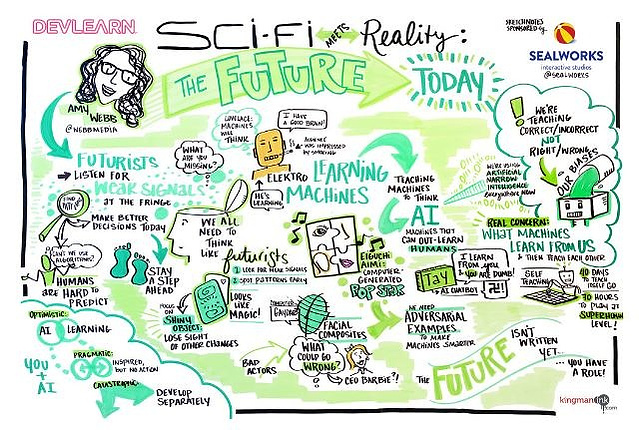 DEVLEARN
SCI-FI MEETS Reality:
SKETCHNOTES
SPONSORED by:
SEALWORKS
interactive studios
@SEALWORKS
THE FUTURE
TODAY
AMY
WEBB
@WEBBMEDIA
FUTURISTS
LISTEN FOR
WEAK SIGNALS
AT THE FRINGE
MAKE BETTER
DECISIONS TODAY
HUMANS
ARE HARD TO
PREDICT
STAY
A STEP
AHEAD
WHAT
ARE YOU
MISSING?
LOVELACE:
MACHINES
WILL
THINK
I HAVE
A GOOD BRAIN!
AUDIENCE
WAS IMPRESSED
BY SMOKING
ELEKTRO
HE'S
LEARNING
LEARNING
MACHINES
TEACHING
MACHINES
TO THINK
AI
MACHINES THAT
CAN OUT-LEARN
HUMANS
WE'RE USING
ARTIFICIAL
NARROW
INTELLIGENCE
EVERYWHERE NOW
WE'RE
TEACHING
CORRECT/INCORRECT
NOT
RIGHT/WRONG
OUR BIASES
REAL CONCERN:
WHAT MACHINES
LEARN FROM US
& THEM TEACH EACH OTHER
WE ALL
NEED TO
THINK
LIKE
futurists
1 LOOK FOR WEAK SIGNALS
2 SPOT PATTERNS EARLY
FOCUS
ON
SHINY
OBJECT:
LOSE SIGHT
OF OTHER CHANGES
LOOKS
LIKE
MAGIC!
EIGUCHI
AIMI:
COMPUTER-
GENERATED
POP STAR
TAY
I LEARN
FROM YOU
& YOU ARE DUMB!
AI CHATBOT
SELF
TEACHING
40 DAYS
TO TEACH
ITSELF GO
70 HOURS
TO PLAY AT
SUPERHUMAN
LEVEL!
WE NEED
ADVERSARIAL
EXAMPLES
TO MAKE
MACHINES SMARTER
FACIAL
COMPOSITES
BAD
ACTORS
WHAT
COULD GO
WRONG?
CEO BARBIE?!
OPTIMISTIC:
AI
LEARNING
YOU
+
AI
PRAGMATIC:
INSPIRED,
BUT NO ACTION
CATASTROPHIC:
DEVELOP
SEPARATELY
THE FUTURE
ISN'T
WRITTEN
YET...
YOU HAVE
A ROLE!
kingmanink
.com